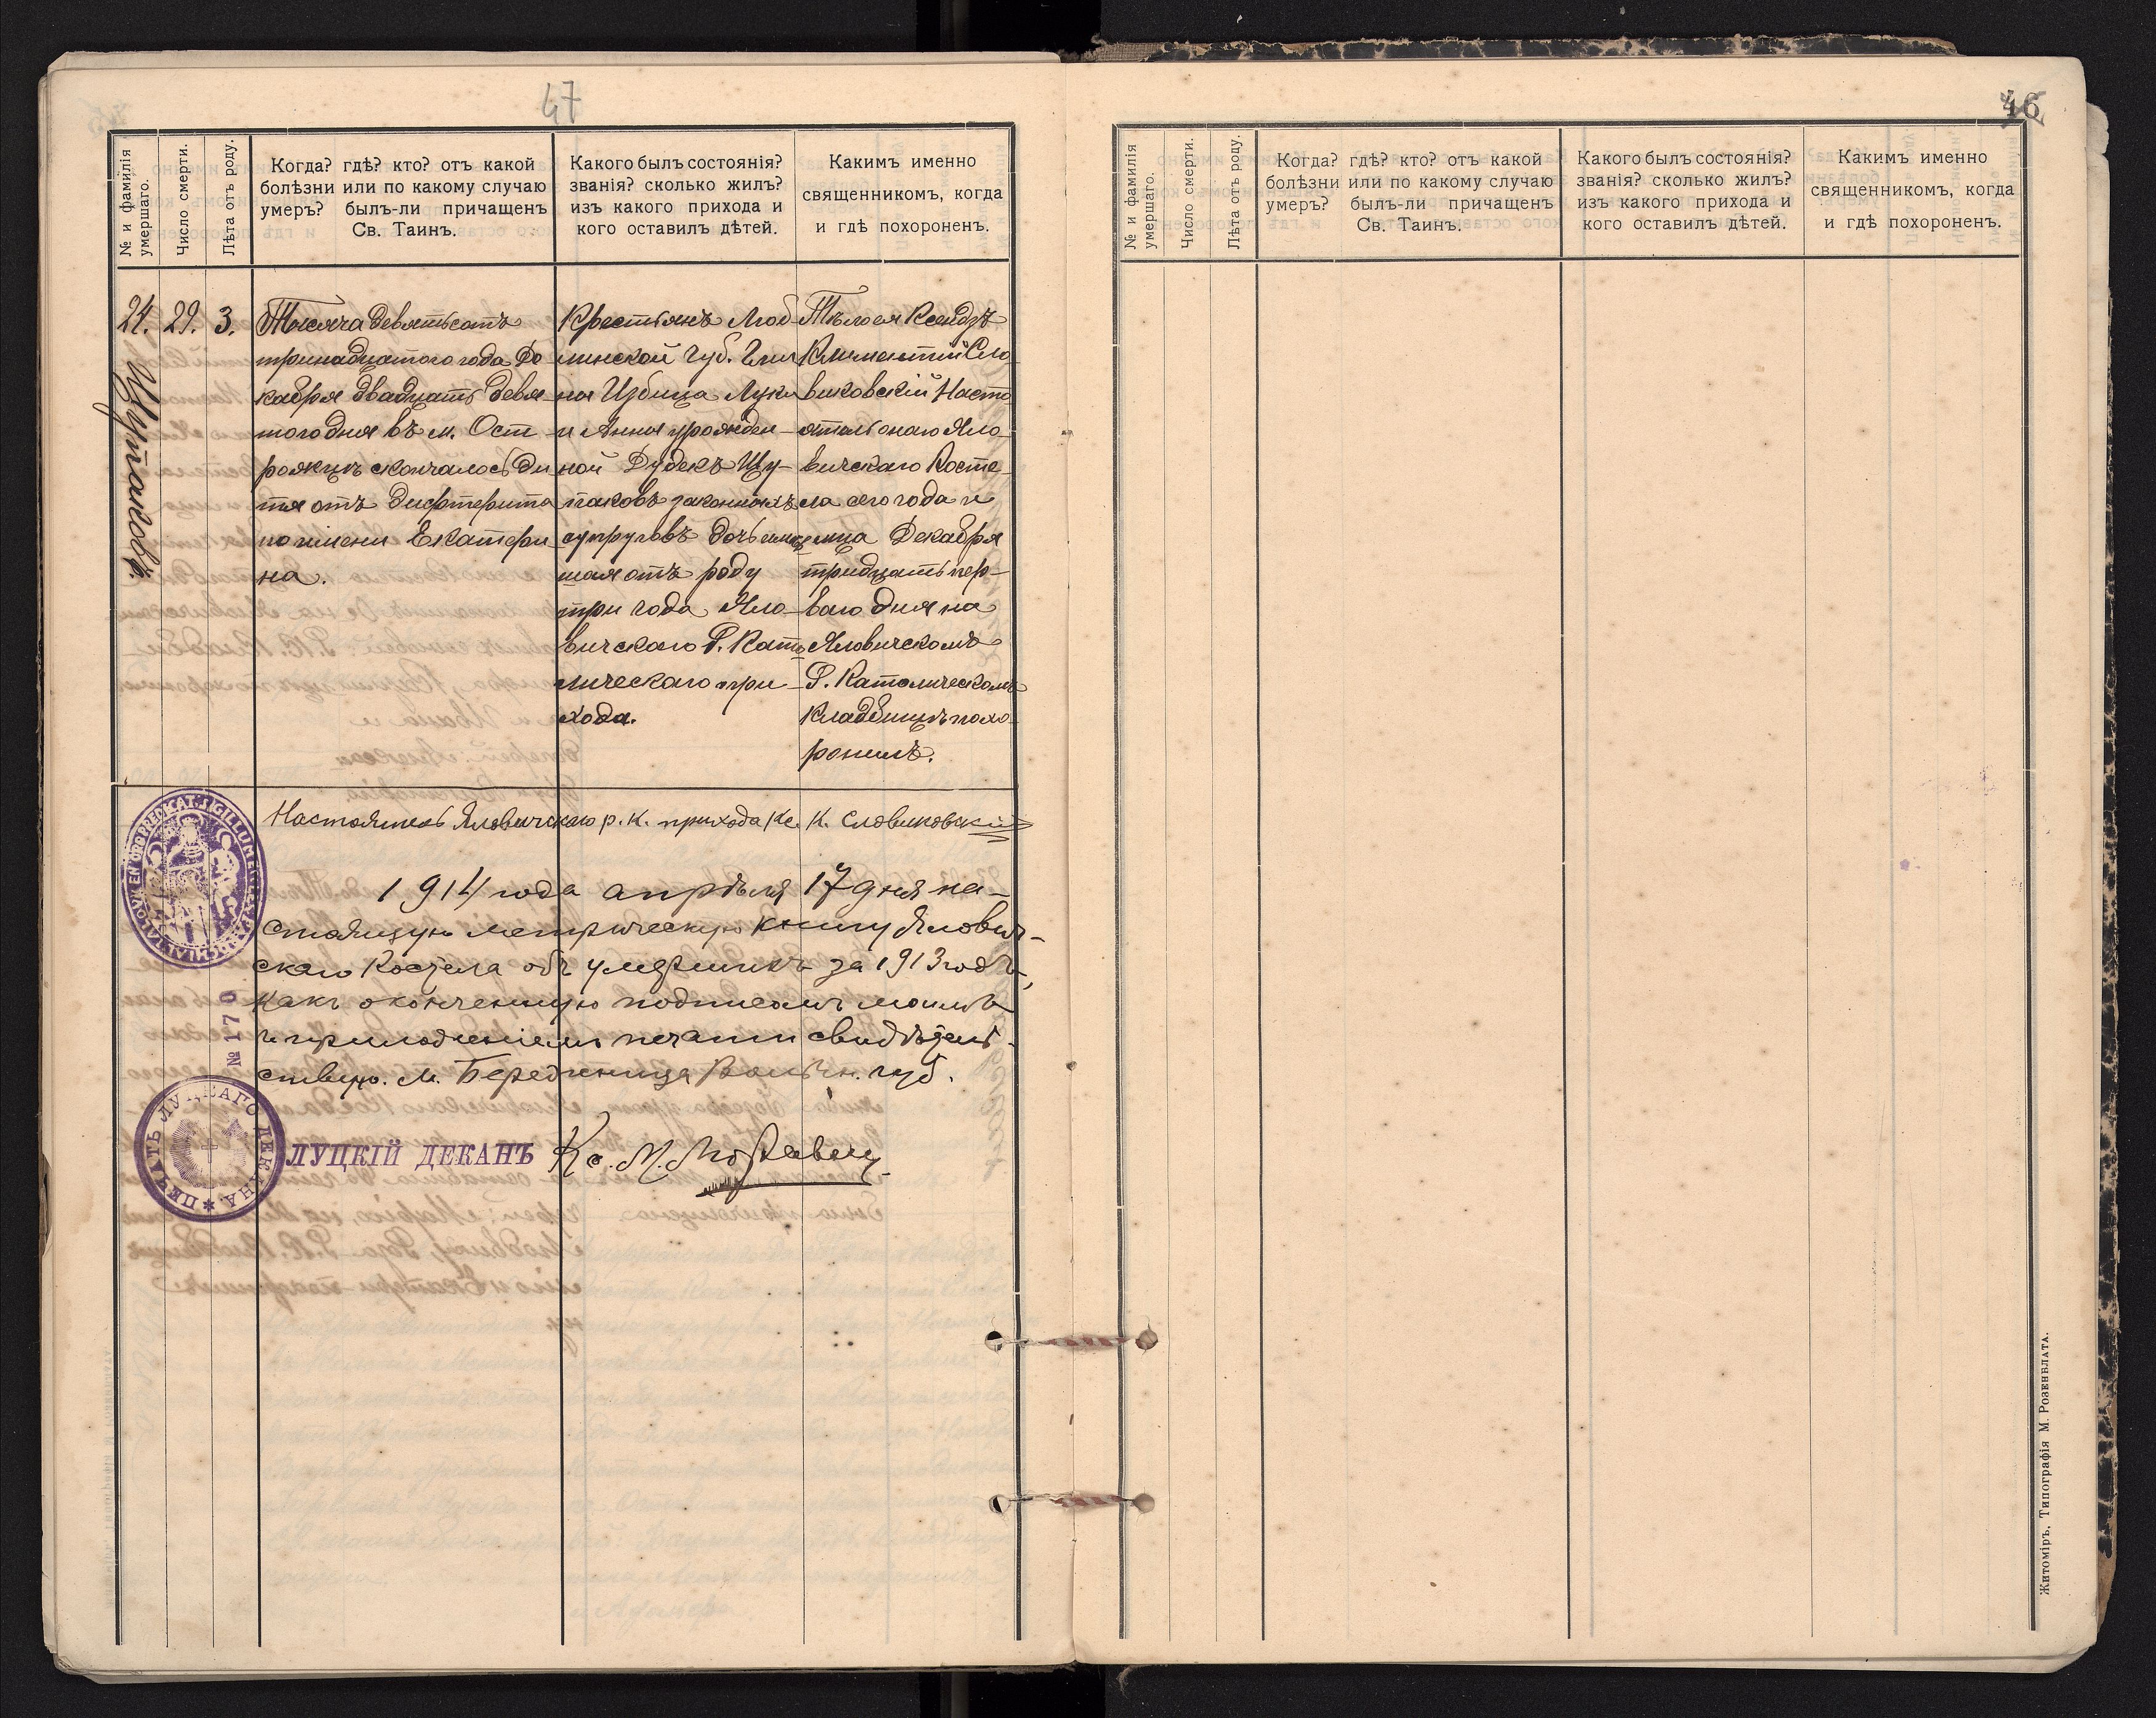 47
№ и фамилія
умершаго.
Число смерти.
Лѣта отъ роду.
Когда? гдѣ? кто? отъ какой
болѣзни или по какому случаю
умеръ? былъ-ли причащенъ
Св. Таинъ.
Какого былъ состоянія?
званія? сколько жилъ?
изъ какого прихода и
кого оставилъ дѣтей.
Какимъ именно
священникомъ, когда
и гдѣ похороненъ.
24.
Щупаковъ.
29.
3.
Тысяча девятьсотъ
тринадцатого года Де
кабря двадцать девя
того дня въ м. Ост
рожцѣ скончалось ди
тя отъ дифтерита
по имени Екатери
на.
Крестьянъ Люб-
линской губ. Гми
ны Избица Луки
и Анны урожден-
ной Дудекъ Щу-
паковъ законныхъ
супруговъ дочь имѣ
шая отъ роду
три года Яло-
вичскаго Р. Като
лическаго при-
хода.
Тѣло ея Ксендзъ
Климентій Сло
виковскій Насто
ятель онаго Яло-
вичскаго Косте-
ла сего года и
м-ца Декабря
тридцать пер-
ваго дня на
Яловичскомъ
Р. Католическомъ
Кладбищѣ похо-
ронилъ.
Настоятель Яловичскаго р. к. прихода Кс. К. Словиковскій
1914 года апрѣля 17 дня на-
стоящую метрическую книгу Ялович-
скаго Костела объ умершихъ за 1913 годъ,
какъ оконченную подписомъ моимъ
и приложеніемъ печати свидѣтель-
ствую. м. Бережница Волын. губ.
№ 170
ПЕЧАТЬ ЛУЦКАГО ДЕКАНА
ЛУЦКІЙ ДЕКАНЪ Кс. М.
46
№ и фамилія
умершаго.
Число смерти.
Лѣта отъ роду.
Когда? гдѣ? кто? отъ какой
болѣзни или по какому случаю
умеръ? былъ-ли причащенъ
Св. Таинъ.
Какого былъ состоянія?
званія? сколько жилъ?
изъ какого прихода и
кого оставилъ дѣтей.
Какимъ именно
священникомъ, когда
и гдѣ похороненъ.
Житоміръ, Типографія М. Розенблата.